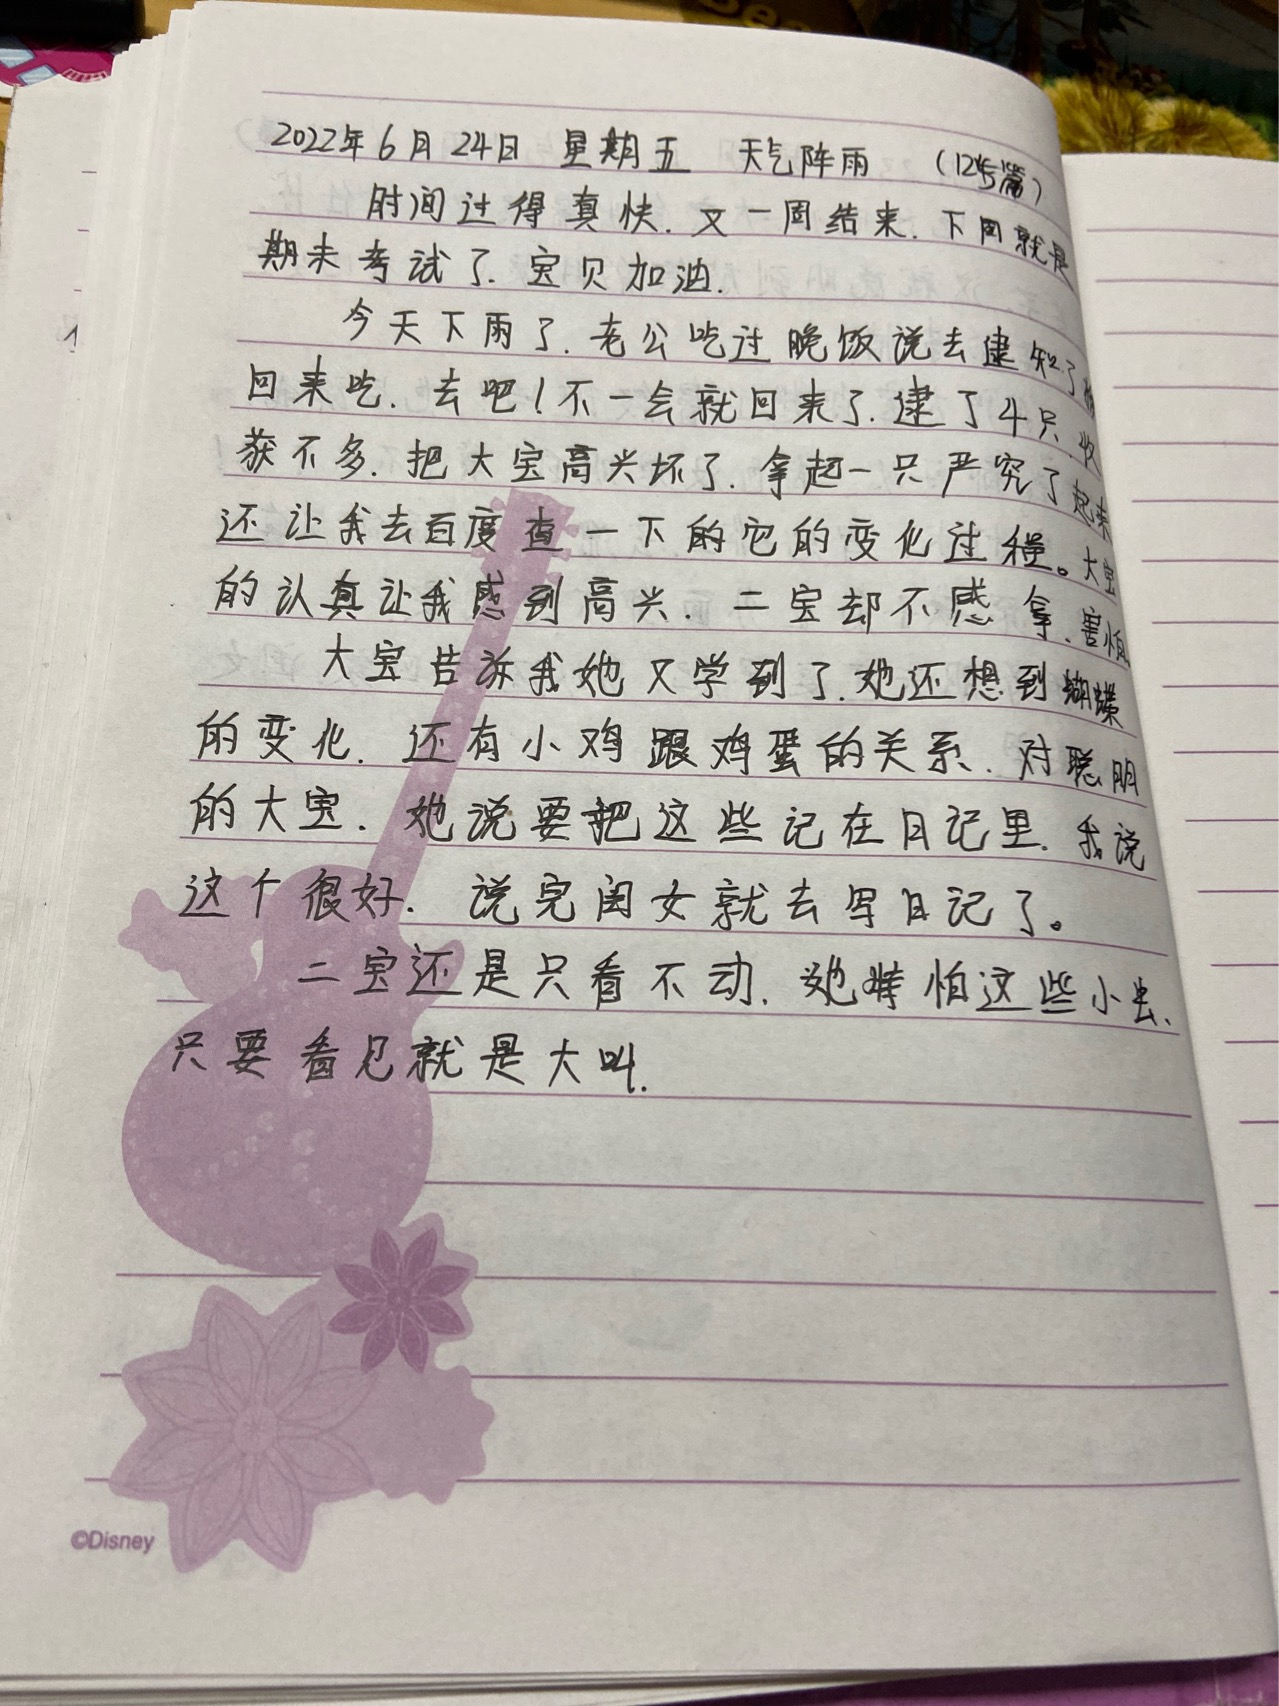 2022年6月24日 星期五 天气阵雨 (125篇)
时间过得真快.又一周结来.下周就是
期末考试了.宝贝加油.
今天下雨了.老公吃过晚饭说去逮知了猴
回来吃.去吧!不一会就回来了.逮了4只.收
获不多.把大宝高兴坏了.拿起一只严究了起来
还让我去百度查一下的它的变化过程。大宝
的认真让我感到高兴.二宝却不感拿.害怕.
大宝告诉我她又学到了.她还想到蝴蝶
的变化.还有小鸡跟鸡蛋的关系.对聪明
的大宝.她说要把这些记在日记里.我说
这个很好.说完闺女就去写日记了。
二宝还是只看不动.她特怕这些小虫.
只要看见就是大叫.
©Disney